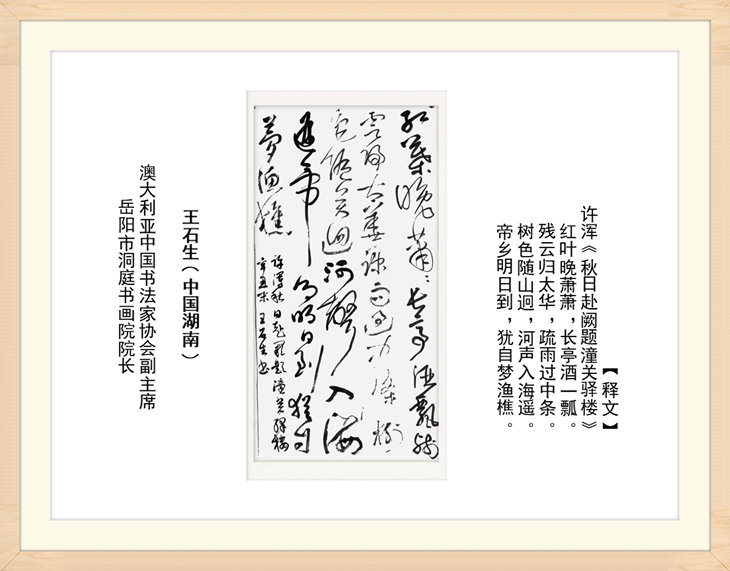 【释文】
许浑《秋日赴阙题潼关驿楼》
红叶晚萧萧，长亭酒一瓢。
残云归太华，疏雨过中条。
树色随山迥，河声入海遥。
帝乡明日到，犹自梦渔樵。
红葉晚萧〻长亭酒一瓢残
雲归太华疎雨过中條树
色随山迥河声入海
遥帝乡明日到猶自
夢漁樵
许渾秋日赴阙题潼关驿楼
辛丑 王石生书
王石生（中国湖南）
澳大利亚中国书法家协会副主席
岳阳市洞庭书画院院长